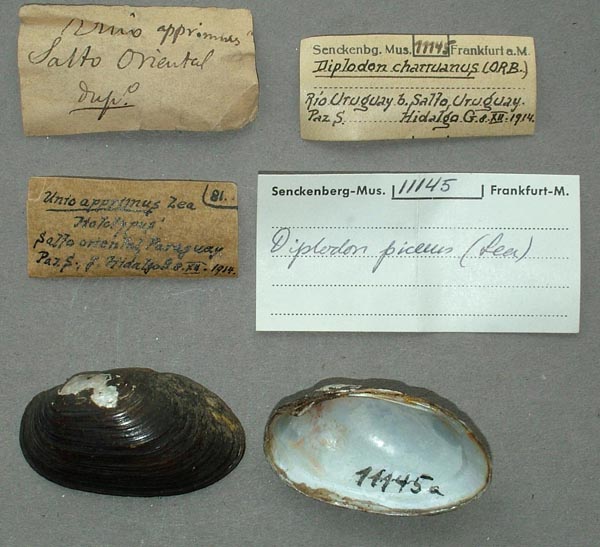 Unio apprimus
Salto Oriental
Dupº
Senckenbg. Mus. 11145 Frankfurt a.M.
Diplodon charruanus (ORB.)
Rio Uruguay b. Salto, Uruguay.
Paz S. Hidalgo G. 8-XII-1914.
Unio apprimus Lea 81.
Holotypus
Salto oriental, Paraguay
Paz. S. g. Hidalgo G. 8-XII-1914.
Senckenberg-Mus. 11145 Frankfurt-M.
Diplodon piceus (Lea)
11145a